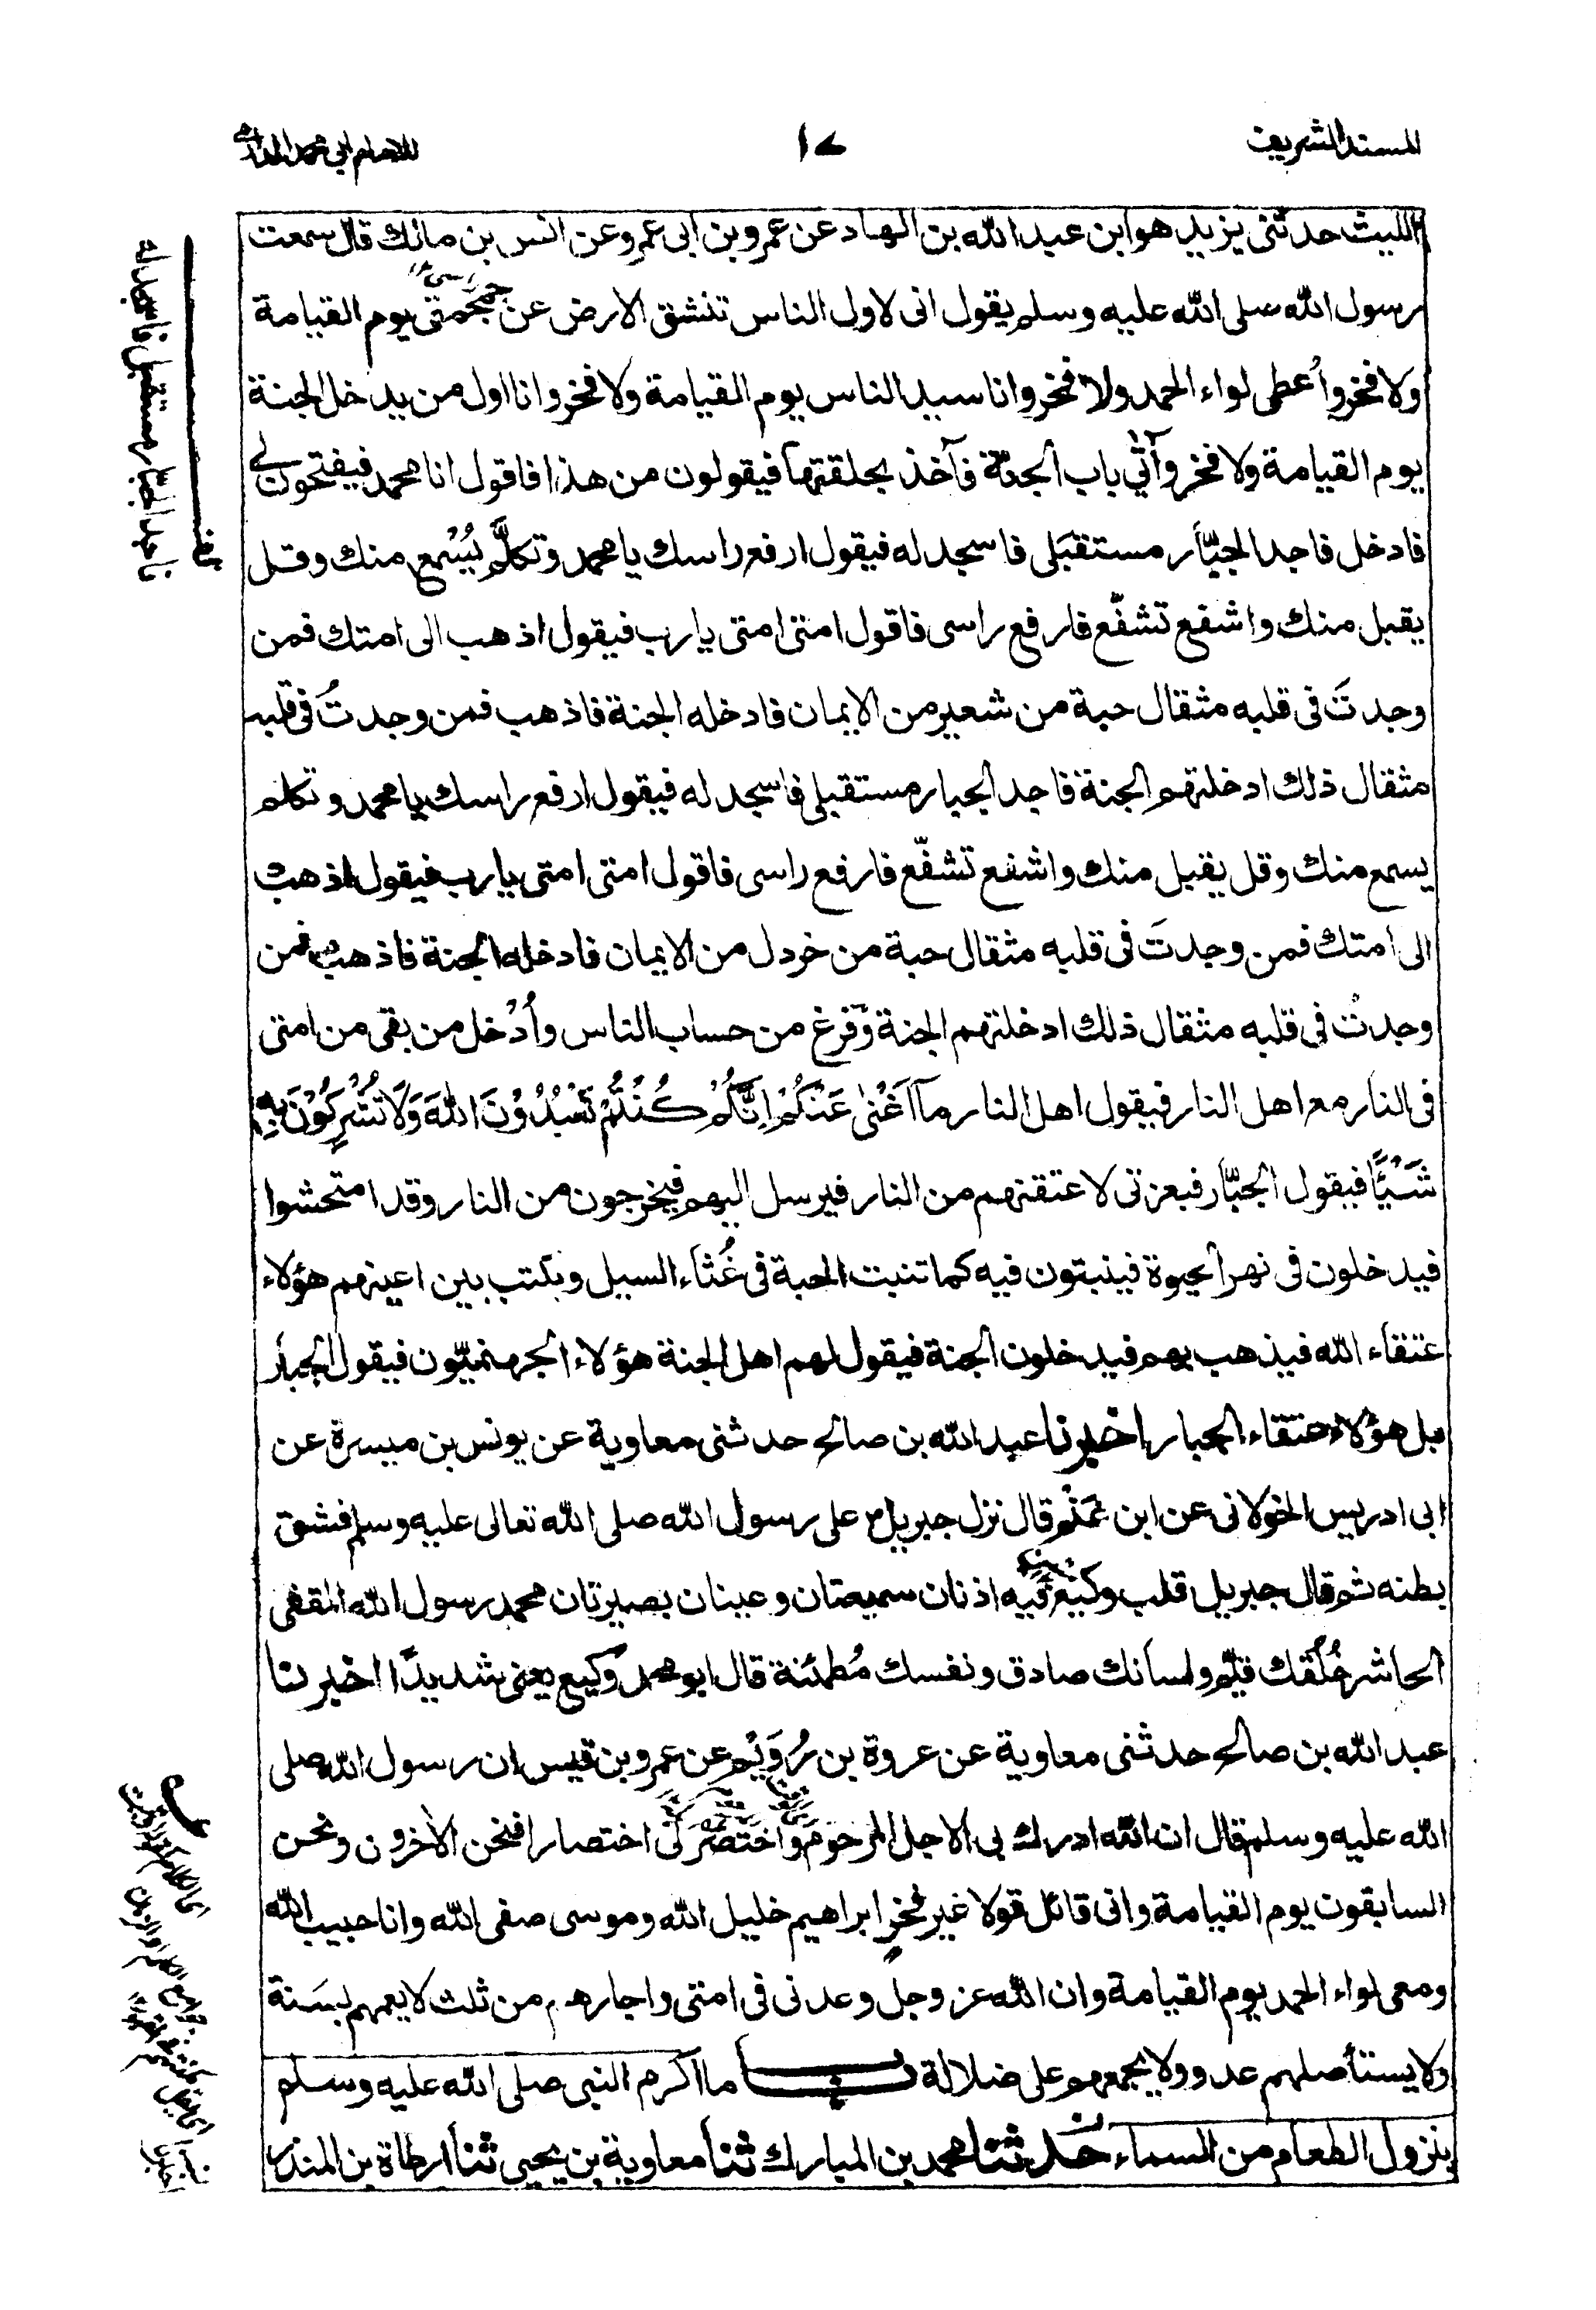 المسند الشريف
١٧
للامام ابي محمد الدارمي
الليث حدثنى يزيد هو ابن عبد الله بن الهاد عن عمرو بن ابى عمرو عن انس بن مالك قال سمعت
رسول الله صلى الله عليه وسلم يقول انى لاول الناس تنشق الارض عن جمجمتى يوم القيامة
ولا فخر واُعطى لواء الحمد ولا فخر وانا سيد الناس يوم القيامة ولا فخر وانا اول من يدخل الجنة
يوم القيامة ولا فخر وآتي باب الجنة فآخذ بحلقتها فيقولون من هذا فاقول انا محمد فيفتحون لي
فادخل فاجد الجبّار مستقبَلى فاسجد له فيقول ارفع راسك يا محمد وتكلَّم يُسْمع منك وقل
يقبل منك واشفع تشفّع فارفع راسى فاقول امتى امتى يا رب فيقول اذهب الى امتك فمن
وجدتَ فى قلبه مثقال حبة من شعير من الايمان فادخله الجنة فاذهب فمن وجدتُ فى قلبه
مثقال ذلك ادخلتهم الجنة فاجد الجبار مستقبلى فاسجد له فيقول ارفع راسك يا محمد وتكلم
يسمع منك وقل يقبل منك واشفع تشفّع فارفع راسى فاقول امتى امتى يا رب فيقول اذهب
الى امتك فمن وجدتَ فى قلبه مثقال حبة من خردل من الايمان فادخله الجنة فاذهب فمن
وجدتُ فى قلبه مثقال ذلك ادخلتهم الجنة وفرغ من حساب الناس واُدْخل من بقى من امتى
فى النار مع اهل النار فيقول اهل النار مآ اَغْنىٰ عَنْكُمْ اِنَّكُمْ كُنْتُمْ تَعْبُدُوْنَ اللهَ وَلَا تُشْرِكُوْنَ بِهٖ
شَيْئًا فيقول الجبّار فبعزتى لاعتقنهم من النار فيرسل اليهم فيخرجون من النار وقد امتحشوا
فيدخلون فى نهر الحيوة فينبتون فيه كما تنبت الحبة فى غُثاء السيل ويكتب بين اعينهم هؤلاء
عتقاء الله فيذهب بهم فيدخلون الجنة فيقول لهم اهل الجنة هؤلاء الجهنميّون فيقول الجبار
بل هؤلاء عتقاء الجبار اخبرنا عبد الله بن صالح حدثنى معاوية عن يونس بن ميسرة عن
ابى ادريس الخولانى عن ابن غَنْم قال نزل جبريل على رسول الله صلى الله تعالى عليه وسلم فشق
بطنه ثم قال جبريل قلب وكيع فيه اذنان سميعتان وعينان بصيرتان محمد رسول الله المقفى
الحاشر خُلُقك قيّم ولسانك صادق ونفسك مُطمئنة قال ابو محمد وكيع يعنى شديدًا اخبرنا
عبد الله بن صالح حدثنى معاوية عن عروة بن رُوَيْم عن عمرو بن قيس ان رسول الله صلى
الله عليه وسلم قال ان الله ادرك بى الاجل المرحوم واختصر لى اختصارا فنحن الآخرون ونحن
السابقون يوم القيامة وانى قائل قولا غير فخرٍ ابراهيم خليل الله وموسى صفى الله وانا حبيب الله
ومعى لواء الحمد يوم القيامة وان الله عز وجل وعدنى فى امتى واجارهم من ثلث لا يعمهم بسَنة
ولا يستأصلهم عدو ولا يجمعهم على ضلالة باب ما اكرم النبى صلى الله عليه وسلم
بنزول الطعام من السماء حدثنا محمد بن المبارك ثنا معاوية بن يحيى ثنا ارطاة بن المنذر
فاجد الجبّار مستقبلى فاسجد له